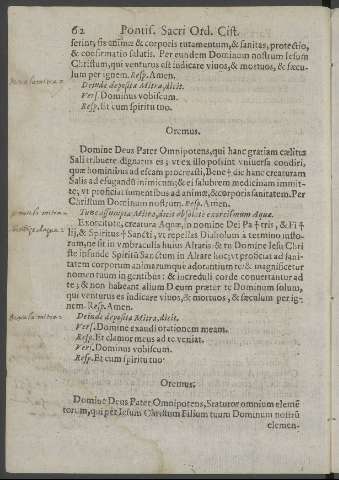 62 Pontif. Sacri Ord. Cist.
ferint, sis animæ & corporis tutamentum, & sanitas, protectio,
& confirmatio salutis. Per eundem Dominum nostrum Iesum
Christum, qui venturus est indicare viuos, & mortuos, & sæcu-
lum per ignem. Resp. Amen.
Deinde deposita Mitra, dicit.
Vers. Dominus vobiscum.
Resp. Et cum spiritu tuo.
Oremus.
Domine Deus Pater Omnipotens, qui hanc gratiam cælitus
Sali tribuere dignatus es; vt ex illo possint vniuersa condiri,
quæ hominibus ad escam procreasti, Bene ✝ dic hanc creaturam
Salis ad effugandū inimicum; & ei salubrem medicinam immit-
te; vt proficiat sumentibus ad animæ, & corporis sanitatem. Per
Christum Dominum nostrum. Resp. Amen.
Tunc assumpta Mitra, dicit absolutè exorcismum Aquæ.
Exorcizo te, creatura Aquæ, in nomine Dei Pa ✝ tris, & Fi ✝
lij, & Spiritus ✝ Sancti, vt repellas Diabolum à termino iusto-
rum; ne sit in vmbraculis huius Altaris: & tu Domine Iesu Chri
ste infunde Spiritū Sanctum in Altare hoc; vt proficiat ad sani-
tatem corporum animarumque adorantium te: & magnificetur
nomen tuum in gentibus: & increduli corde conuertantur ad
te; & non habeant alium Deum præter te Dominum solum,
qui venturus es indicare viuos, & mortuos, & sæculum per ig-
nem. Resp. Amen.
Deinde deposita Mitra, dicit.
Vers. Domine exaudi orationem meam.
Resp. Et clamor meus ad te veniat.
Vers. Dominus vobiscum.
Resp. Et cum spiritu tuo.
Oremus.
Domine Deus Pater Omnipotens, Statutor omnium elemē
torum, qui per Iesum Christum Filium tuum Dominum nostrū
elemen-